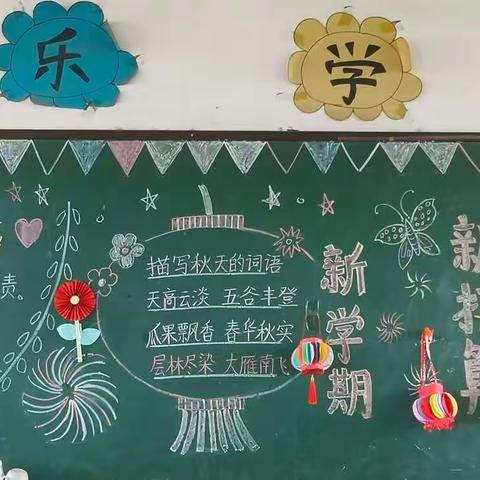 乐 学
责。
描写秋天的词语
天高云淡 五谷丰登
瓜果飘香 春华秋实
层林尽染 大雁南飞
新学期
新打算